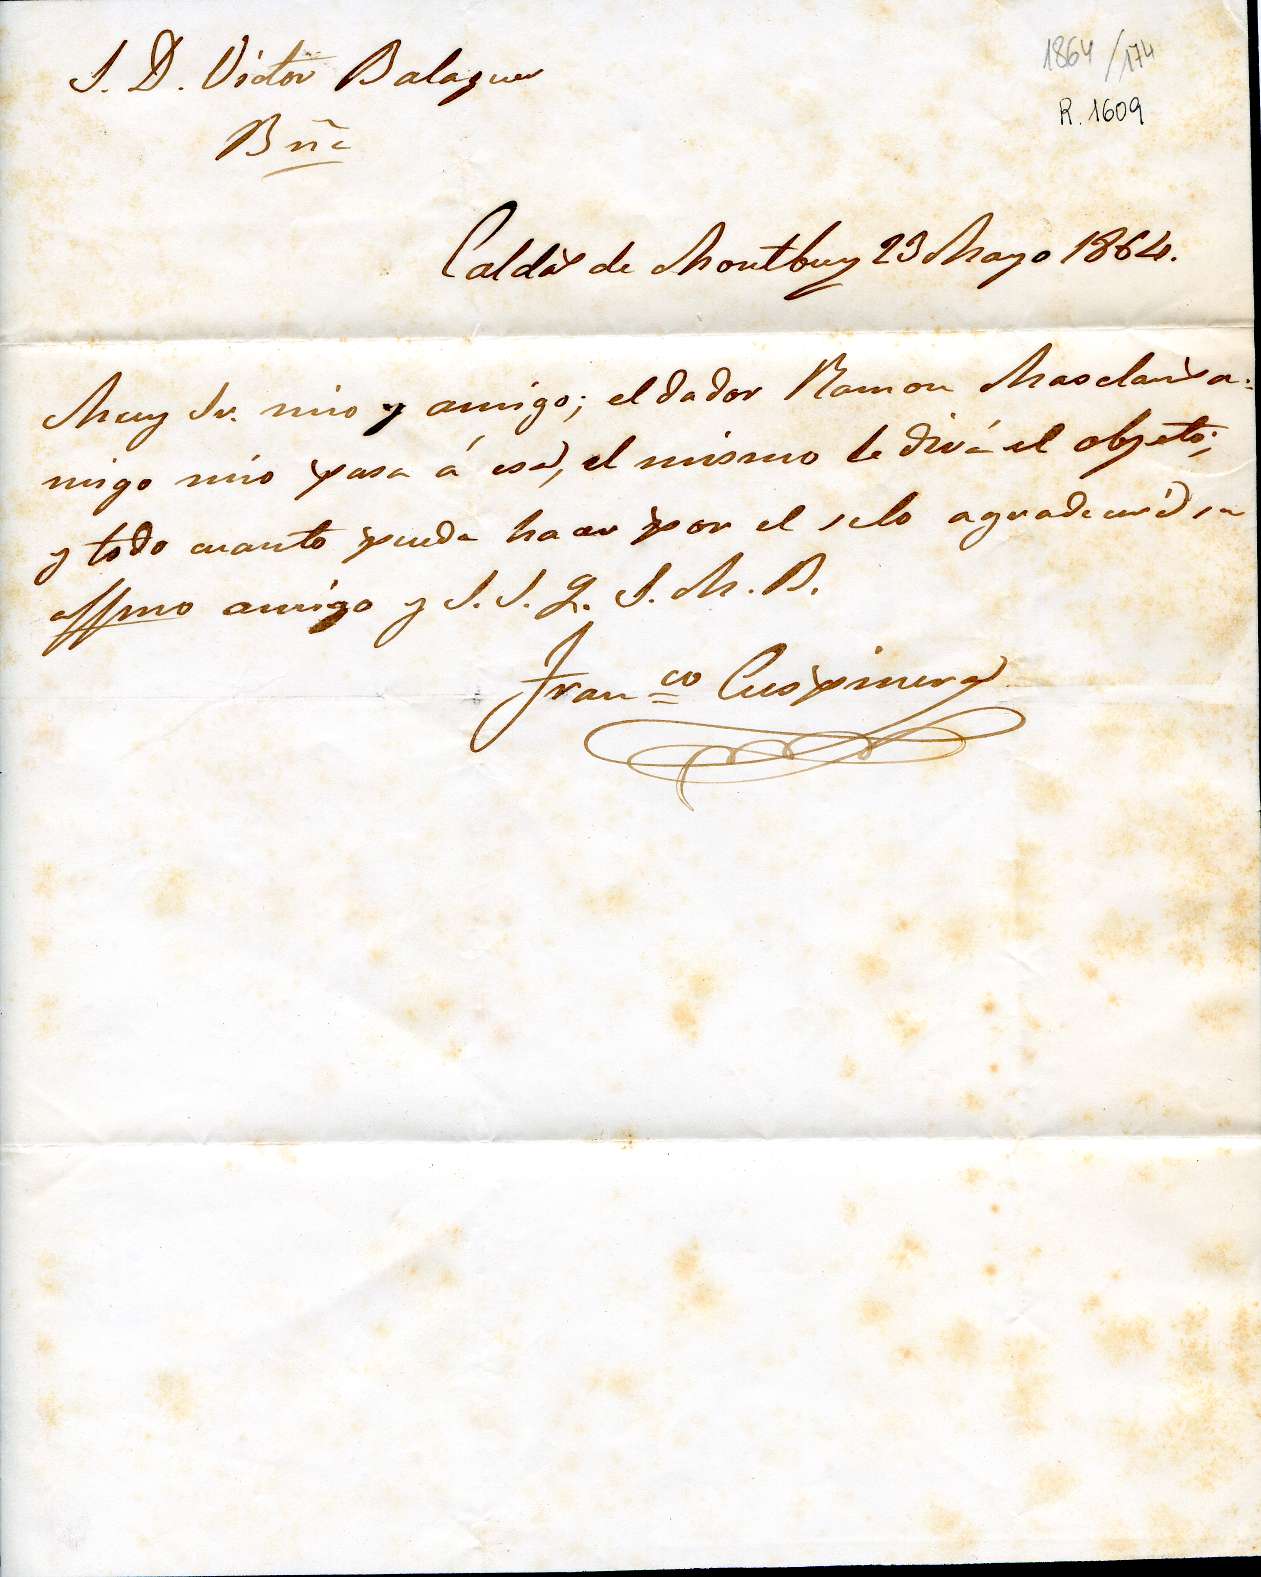 S. D. Victor Balaguer
Bña
1864/174
R. 1609
Caldas de Montbuy 23 Mayo 1864.
Muy Sr. mio y amigo; el dador Ramon Masclans a-
migo mio pasa á esa, el mismo le dirá el objeto;
y todo cuanto pueda hacer por el selo agradecerá su
affmo amigo y S. S. Q. S. M. B.
Fran.co Cuspinera